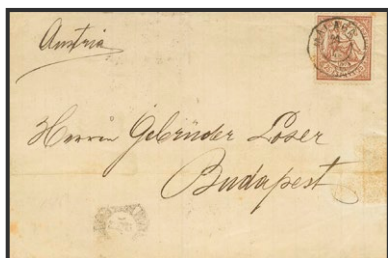 Austria
Herren Gebrüder Loser
Budapest